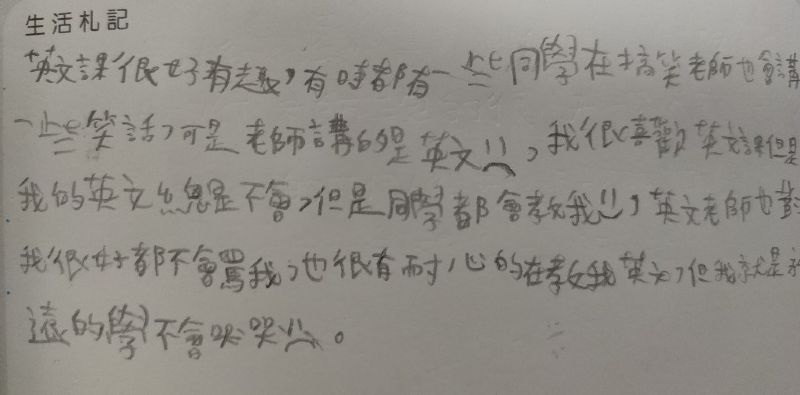 生活札記
英文課很好有趣，有時都有一些同學在搞笑老師也會講
一些笑話，可是老師講的是英文，我很喜歡英文課但是
我的英文總是不會，但是同學都會教我，英文老師也對
我很好都不會罵我，也很有耐心的在教我英文，但我就是永
遠的學不會哭哭。